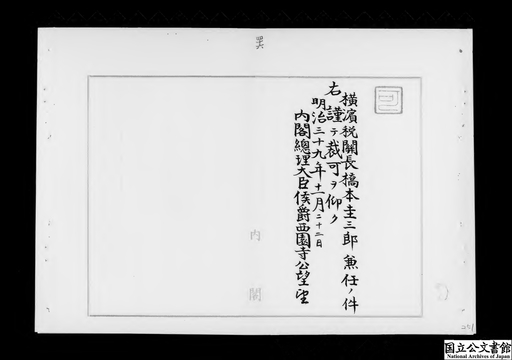 横濱税關長橋本圭三郎兼任ノ件
右謹テ裁可ヲ仰ク
明治三十九年十一月二十二日
内閣總理大臣侯爵西園寺公望
内閣
国立公文書館
National Archives of Japan